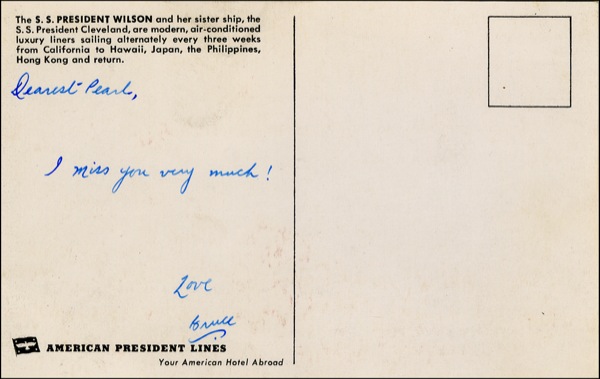 The S. S. PRESIDENT WILSON and her sister ship, the
S. S. President Cleveland, are modern, air-conditioned
luxury liners sailing alternately every three weeks
from California to Hawaii, Japan, the Philippines,
Hong Kong and return.
Dearest Pearl,
I miss you very much!
Love
Bruce
AMERICAN PRESIDENT LINES
Your American Hotel Abroad